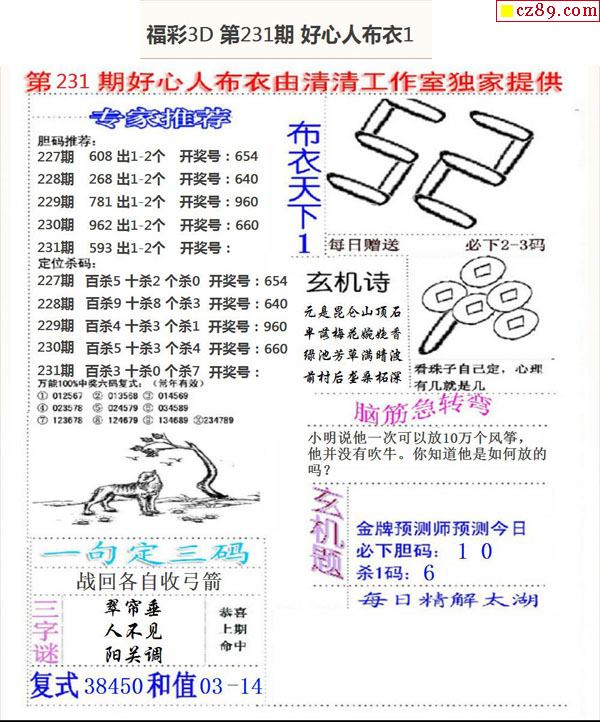 cz89.com
福彩3D 第231期 好心人布衣1
第 231 期好心人布衣由清清工作室独家提供
专家推荐
胆码推荐:
227期 608 出1-2个 开奖号:654
228期 268 出1-2个 开奖号:640
229期 781 出1-2个 开奖号:960
230期 962 出1-2个 开奖号:660
231期 593 出1-2个 开奖号:
定位杀码:
227期 百杀5 十杀2 个杀0 开奖号:654
228期 百杀9 十杀8 个杀3 开奖号:640
229期 百杀4 十杀3 个杀1 开奖号:960
230期 百杀5 十杀3 个杀4 开奖号:660
231期 百杀3 十杀0 个杀7 开奖号:
万能100%中奖六码复式:(常年有效)
① 012567 ② 013568 ③ 014569
④ 023578 ⑤ 024579 ⑥ 034589
⑦ 123678 ⑧ 124679 ⑨ 134689 ⑩234789
布衣天下1
52
每日赠送 必下2-3码
玄机诗
元是昆仑山顶石
早落梅花婉娩香
绿池芳草满晴波
前村后垄桑柘深
看珠子自己定,心理
有几就是几
脑筋急转弯
小明说他一次可以放10万个风筝,
他并没有吹牛。你知道他是如何放的
吗?
一句定三码
战回各自收弓箭
三字谜
翠帘垂
人不见
阳关调
恭喜
上期
命中
复式 38450 和值 03-14
玄机题
金牌预测师预测今日
必下胆码: 1 0
杀1码: 6
每日精解太湖